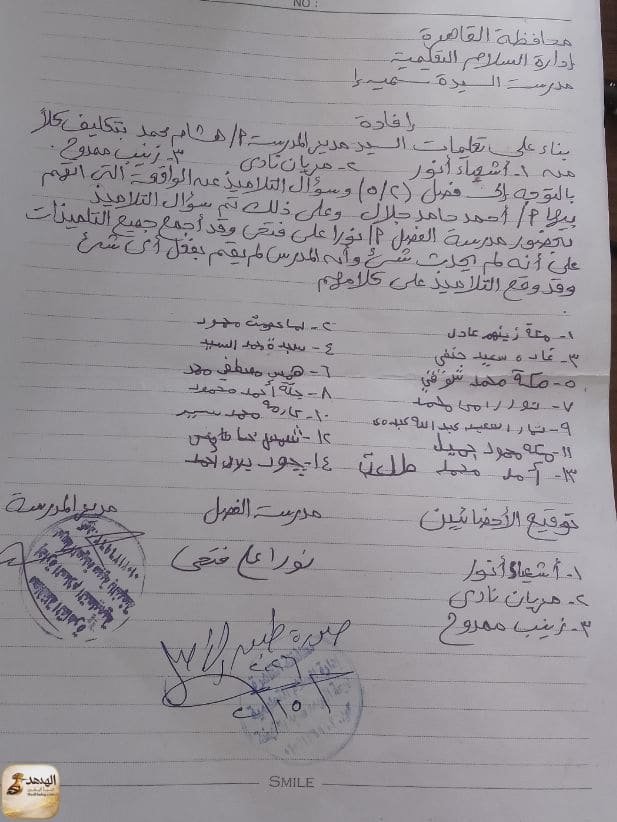 NO :
محافظة القاهرة
إدارة السلام التعليمية
مدرسة السيدة سمية
إفادة
بناء على تعليمات السيد مدير المدرسة أ/ هشام محمد بتكليف كلاً
من ١- أشعياء أنور ٢- مريان نادى ٣- زينب ممدوح
بالتوجه إلى فصل (٥/٢) وسؤال التلاميذ عن الواقعة التى اتهم
بها أ/ أحمد حامد جلال وعلى ذلك تم سؤال التلاميذ
بحضور مدرسة الفصل أ/ نورا على فتحى وقد أجمع جميع التلميذات
على أنه لم يحدث شئ وأنه المدرس لم يقم بفعل أى شئ
وقد وقع التلاميذ على كلامهم
١- منة زينهم عادل ٢- محمود
٣- غادة سعيد حنفى ٤- سيدة حمد السيد
٥- مكة محمد شوقي ٦- همس مصطفى محمد
٧- نورا رامى محمد ٨- جنة أحمد محمود
٩- السعيد عبد الله ١٠- محمد سمير
١١- منة محمود جميل ١٢- شمس
١٣- محمد طلعت ١٤- جود بلال أحمد
توقيع الأخصائيين مدرسة الفصل مدير المدرسة
١- أشعياء أنور نورا على فتحى
٢- مريان نادى
٣- زينب ممدوح
صورة طبق الأصل
SMILE
الهدهد